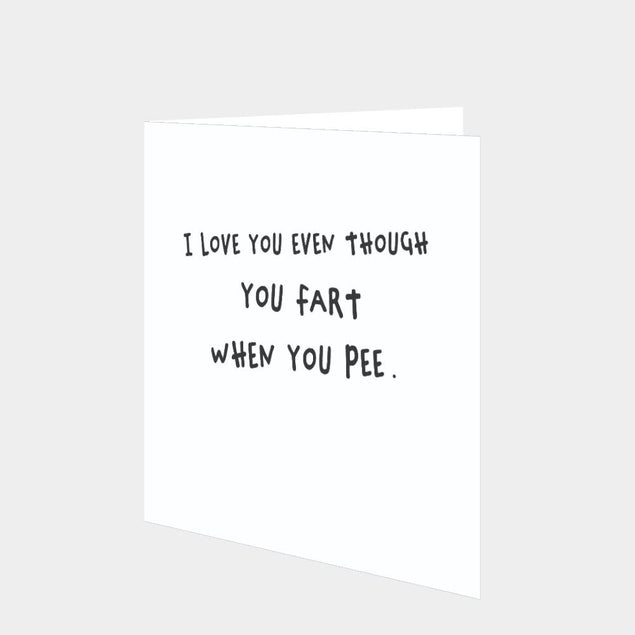 I LOVE YOU EVEN THOUGH
YOU FART
WHEN YOU PEE.